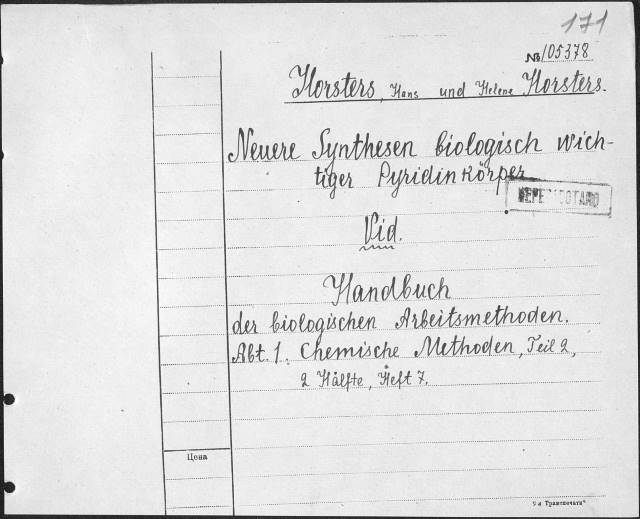 171
№105378
Horsters, Hans und Helene Horsters.
Neuere Synthesen biologisch wich-
tiger Pyridinkörper
Vid.
Handbuch
der biologischen Arbeitsmethoden.
Abt. 1. Chemische Methoden, Teil 2,
2 Hälfte, Heft 7.
Цена